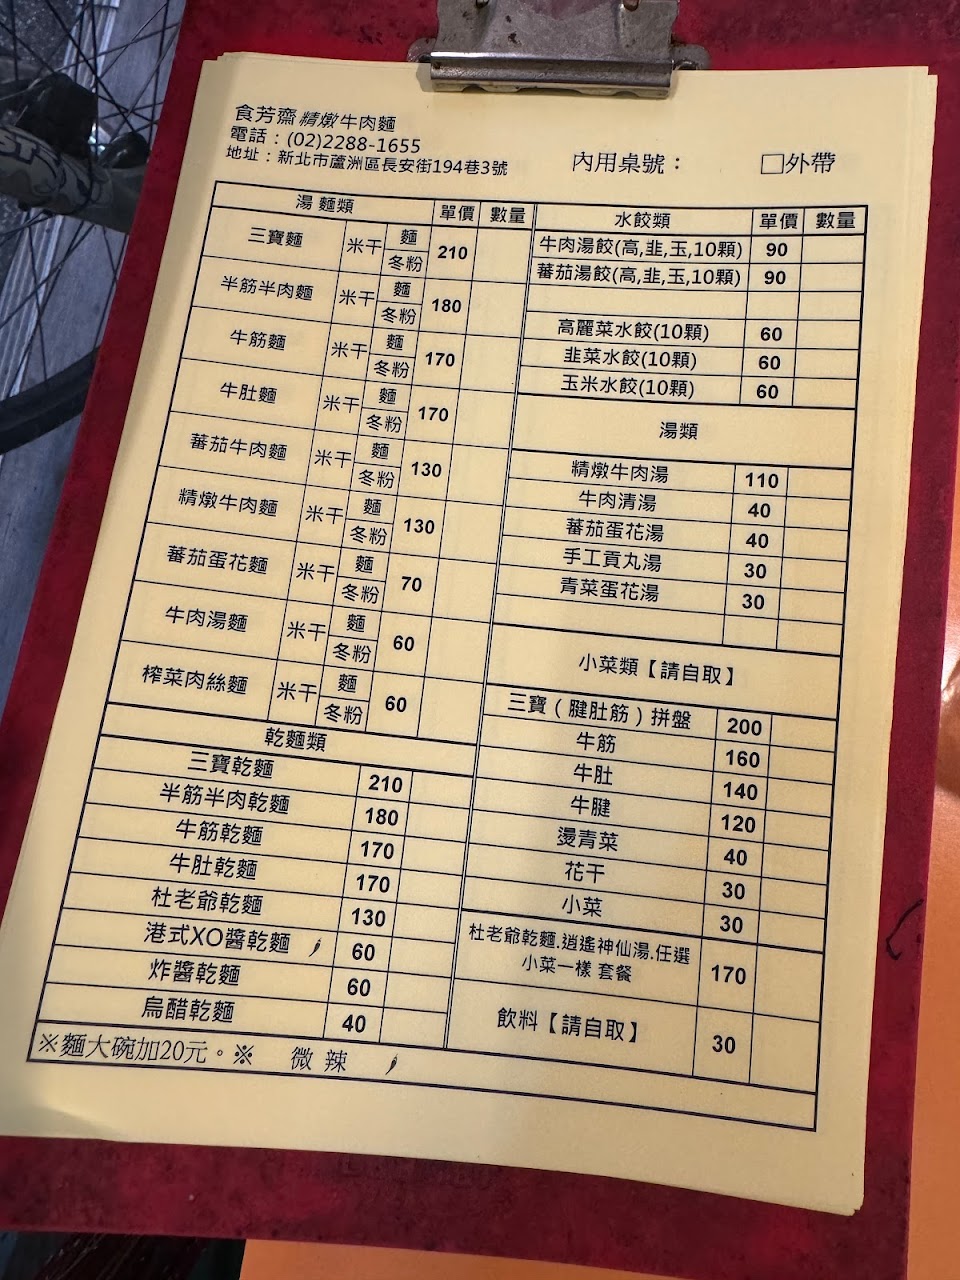 食芳齋精燉牛肉麵
電話：(02)2288-1655
地址：新北市蘆洲區長安街194巷3號
內用桌號： □外帶
湯 麵類 單價 數量
三寶麵 米干 麵 冬粉 210
半筋半肉麵 米干 麵 冬粉 180
牛筋麵 米干 麵 冬粉 170
牛肚麵 米干 麵 冬粉 170
蕃茄牛肉麵 米干 麵 冬粉 130
精燉牛肉麵 米干 麵 冬粉 130
蕃茄蛋花麵 米干 麵 冬粉 70
牛肉湯麵 米干 麵 冬粉 60
榨菜肉絲麵 米干 麵 冬粉 60
乾麵類
三寶乾麵 210
半筋半肉乾麵 180
牛筋乾麵 170
牛肚乾麵 170
杜老爺乾麵 130
港式XO醬乾麵 60
炸醬乾麵 60
烏醋乾麵 40
水餃類 單價 數量
牛肉湯餃(高,韭,玉,10顆) 90
蕃茄湯餃(高,韭,玉,10顆) 90
高麗菜水餃(10顆) 60
韭菜水餃(10顆) 60
玉米水餃(10顆) 60
湯類
精燉牛肉湯 110
牛肉清湯 40
蕃茄蛋花湯 40
手工貢丸湯 30
青菜蛋花湯 30
小菜類【請自取】
三寶（腱肚筋）拼盤 200
牛筋 160
牛肚 140
牛腱 120
燙青菜 40
花干 30
小菜 30
杜老爺乾麵.逍遙神仙湯.任選
小菜一樣 套餐 170
飲料【請自取】 30
※麵大碗加20元。※ 微 辣